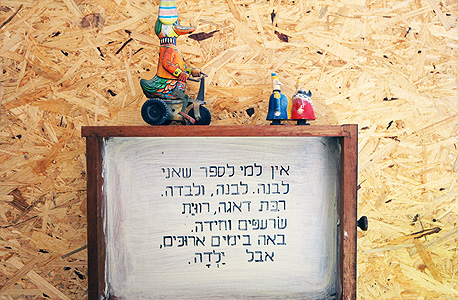 אין למי לספר שאני
לבנה. לבנה, ולבדה.
רבת דאגה, רוויַת
שׂרעפים וחידה.
באה בימים ארוכים,
אבל יַלְדָה.